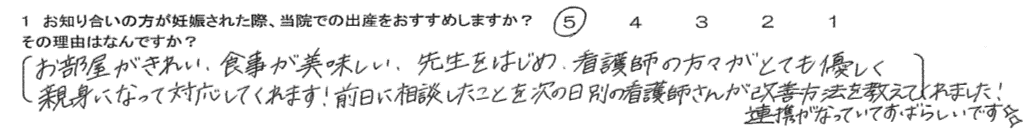 1 お知り合いの方が妊娠された際、当院での出産をおすすめしますか？ 5 4 3 2 1
その理由はなんですか？
お部屋がきれい、食事が美味しい、先生をはじめ、看護師の方々がとても優しく
親身になって対応してくれます！前日に相談したことを次の日別の看護師さんが改善方法を教えてくれました！
連携がなっていてすばらしいです☆